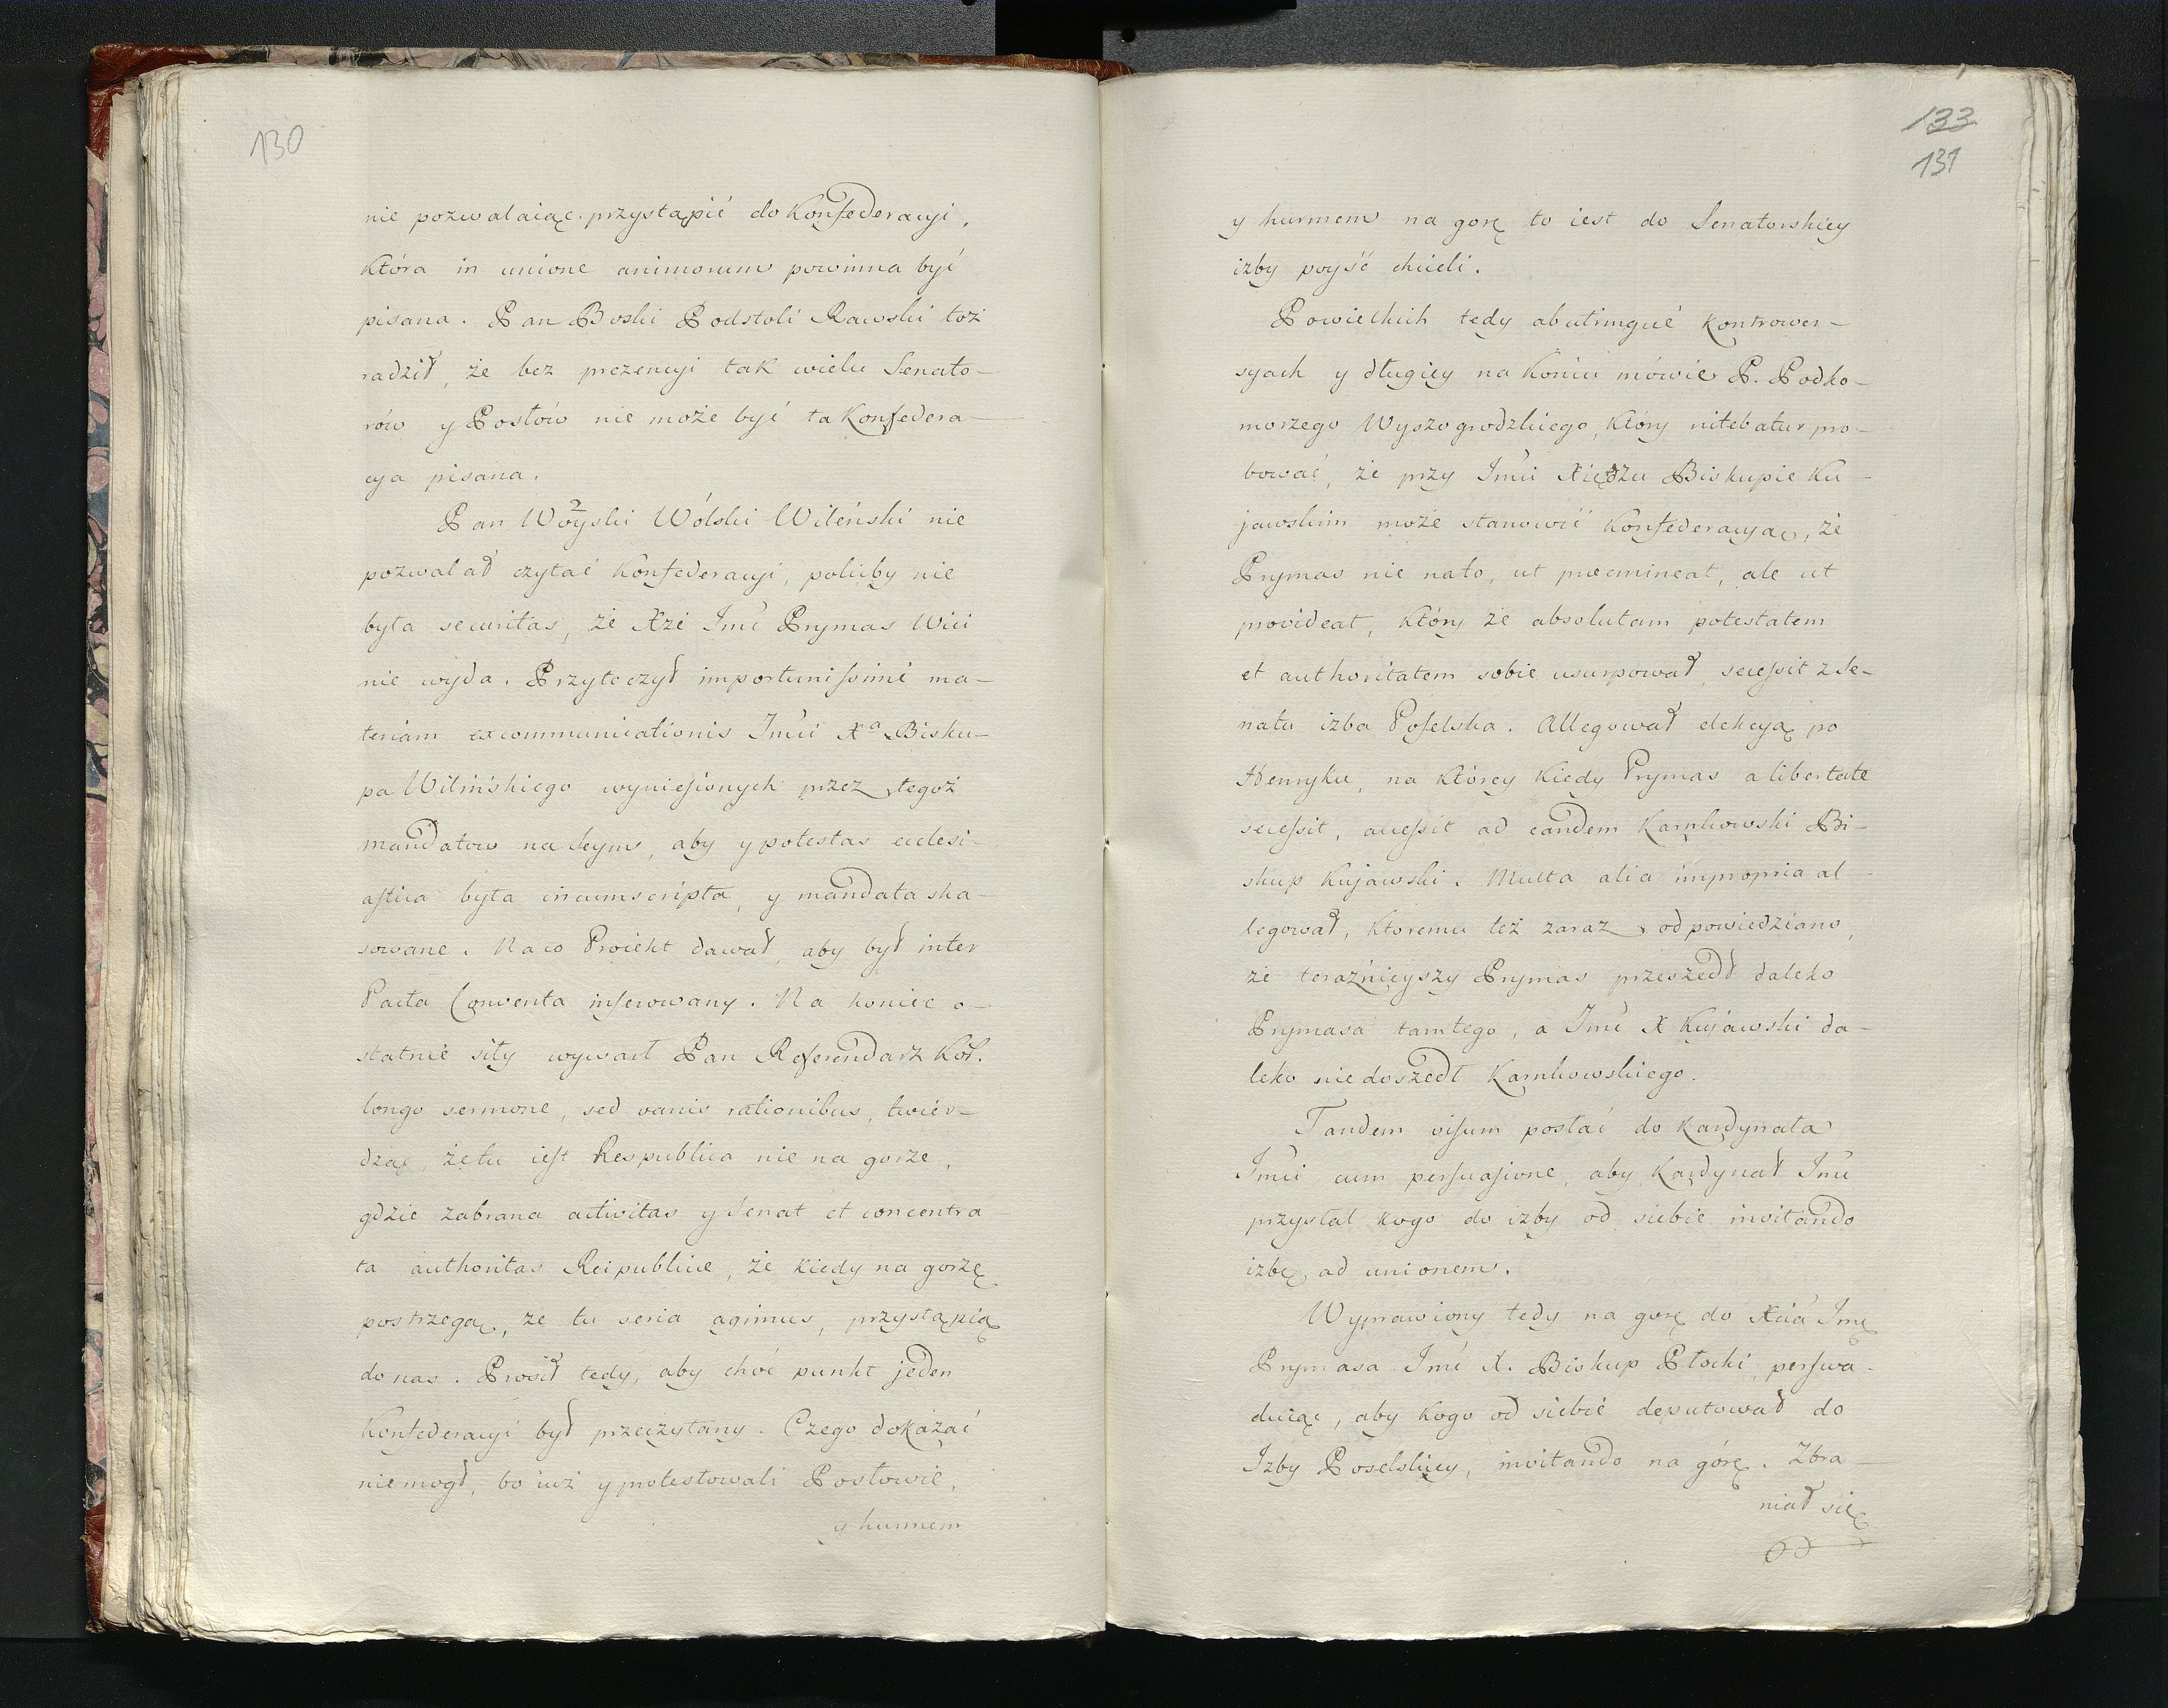 130
nie pozwalaiąc przystąpić do Konfederacyi,
Która in unione animorum powinna być
pisana. Pan Boski Podstoli Rawski toż
radził, że bez prezencyi tak wielu Senato-
rów y Posłów nie może być ta Konfedera-
cya pisana.
Pan Woyski Wólski Wileński nie
pozwalał czytać Konfederacyi, pókiby nie
była securitas, że Xże Jmć Prymas Wici
nie wyda. Przytoczył importunissime ma-
teriam excommunicationis Jmci Xa Bisku-
pa Wilińskiego wyniesionych przez tegoż
mandatow na Seym, aby y potestas eclesi-
astica była circumscripta, y mandata ska-
sowane. Na co Proiekt dawał, aby był inter
Pacta Conventa inserowany. Na koniec o-
statnie siły wywarł Pan Referendarz Kor.
longo sermone, sed vanis rationibus, twier-
dząc, że tu iest Respublica nie na gorze,
gdzie zabrana activitas y Senat et concentra-
ta authoritas Reipublice, że kiedy na gorzę
postrzegą, że tu seria agimus, przystąpią
do nas. Prosił tedy, aby choć punkt jeden
Konfederacyi był przeczytany. Czego dokazać
nie mogł, bo iuż y protestowali Posłowie,
y hurmem
133
131
y hurmem na gorę to iest do Senatorskiey
izby poyść chcieli.
Po wielkich tedy ab utrinque Kontrower-
syach y długiey na Końcu mówie P. Podko-
morzego Wyszogrodzkiego, Który nitebatur pro-
bować, że przy Jmci Xiędzu Biskupie Ku-
jawskim może stanowić Konfederacyą, że
Prymas nie na to, ut præemineat, ale ut
provideat, Który że absolutam potestatem
et authoritatem sobie usurpował, secessit z Se-
natu izba Poselska. Allegował elekcyą po
Henryku, na Którey Kiedy Prymas a libertate
secessit, accessit ad eandem Karnkowski Bi-
skup Kujawski. Multa alia impropria al-
legował, Ktoremu też zaraz odpowiedziano,
że teraźnieyszy Prymas przeszedł daleko
Prymasa tamtego, a Jmć X Kujawski da-
leko nie doszedł Karnkowskiego.
Tandem visum posłać do Kardynała
Jmci cum persuasione, aby Kardynał Jmć
przysłał kogo do izby od siebie invitando
izbę ad unionem.
Wyprawiony tedy na gorę do Xcia Jmę
Prymasa Jmć X. Biskup Płocki, perswa-
duiąc, aby Kogo od siebie deputował do
Izby Poselskiey, invitando na górę. Zbra-
niał się